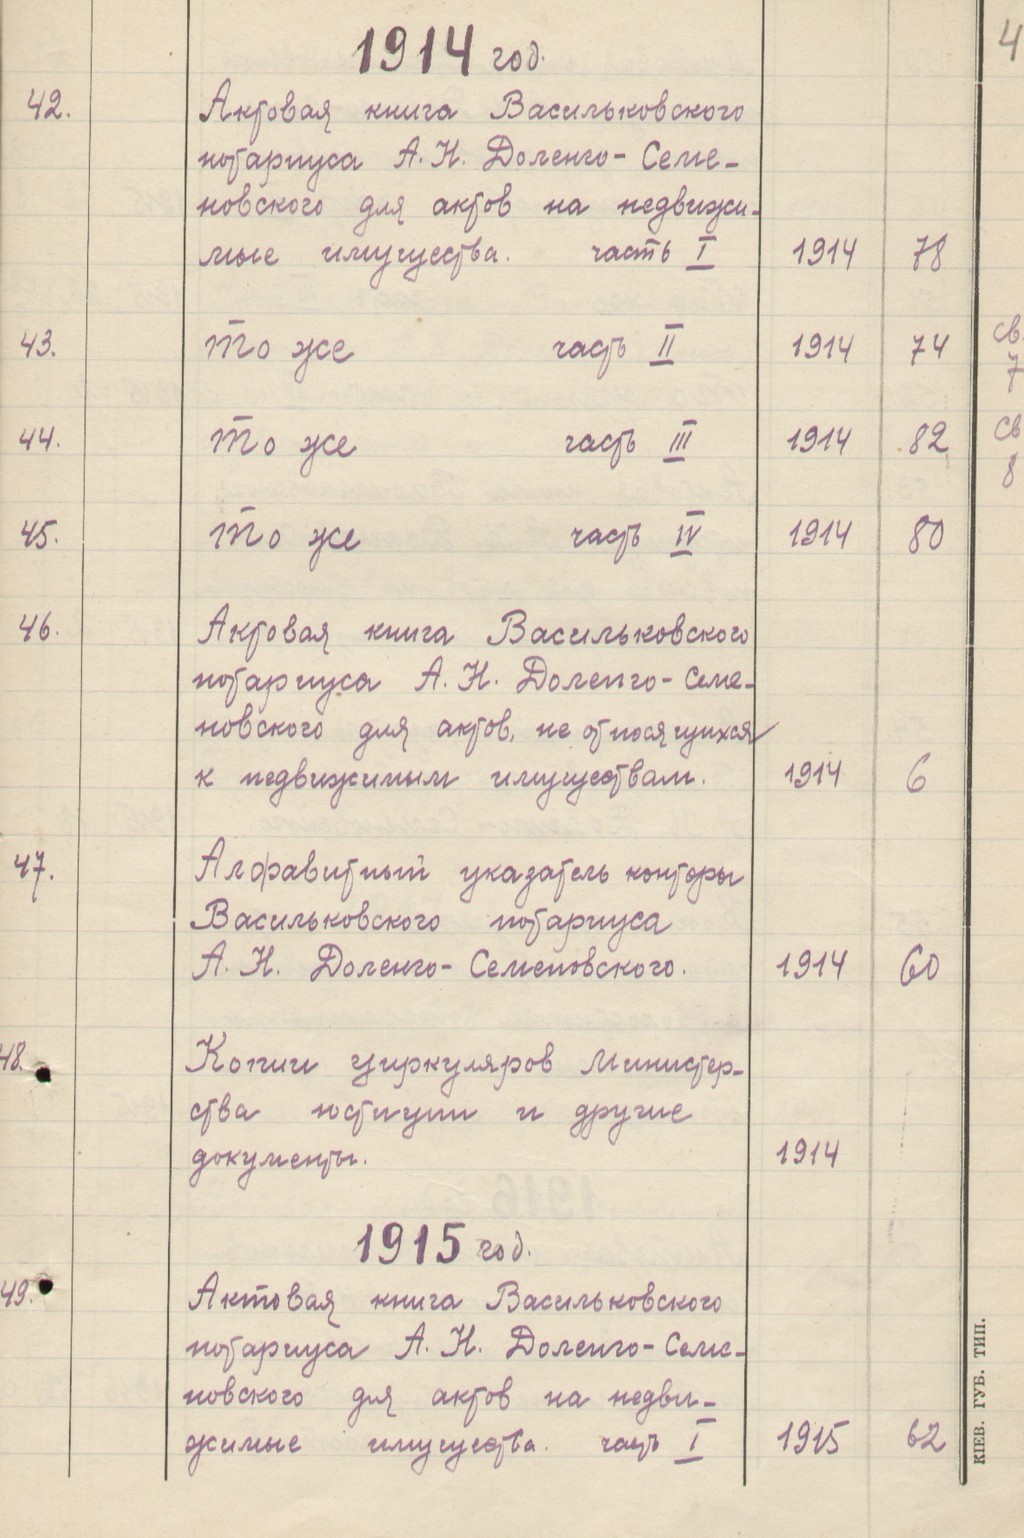 4
1914 год.
42. Актовая книга Васильковского
нотариуса А. Н. Доленго-Семе-
новского для актов на недвижи-
мые имущества. часть I 1914 78
43. То же часть II 1914 74 св. 7
44. То же часть III 1914 82 св 8
45. То же часть IV 1914 80
46. Актовая книга Васильковского
нотариуса А. Н. Доленго-Семе-
новского для актов, не относящихся
к недвижимым имуществам. 1914 6
47. Алфавитный указатель конторы
Васильковского нотариуса
А. Н. Доленго-Семеновского. 1914 60
48. Копии циркуляров Министер-
ства юстиции и другие
документы. 1914
1915 год.
49. Актовая книга Васильковского
нотариуса А. Н. Доленго-Семе-
новского для актов на недви-
жимые имущества. часть I 1915 62
КІЕВ. ГУБ. ТИП.